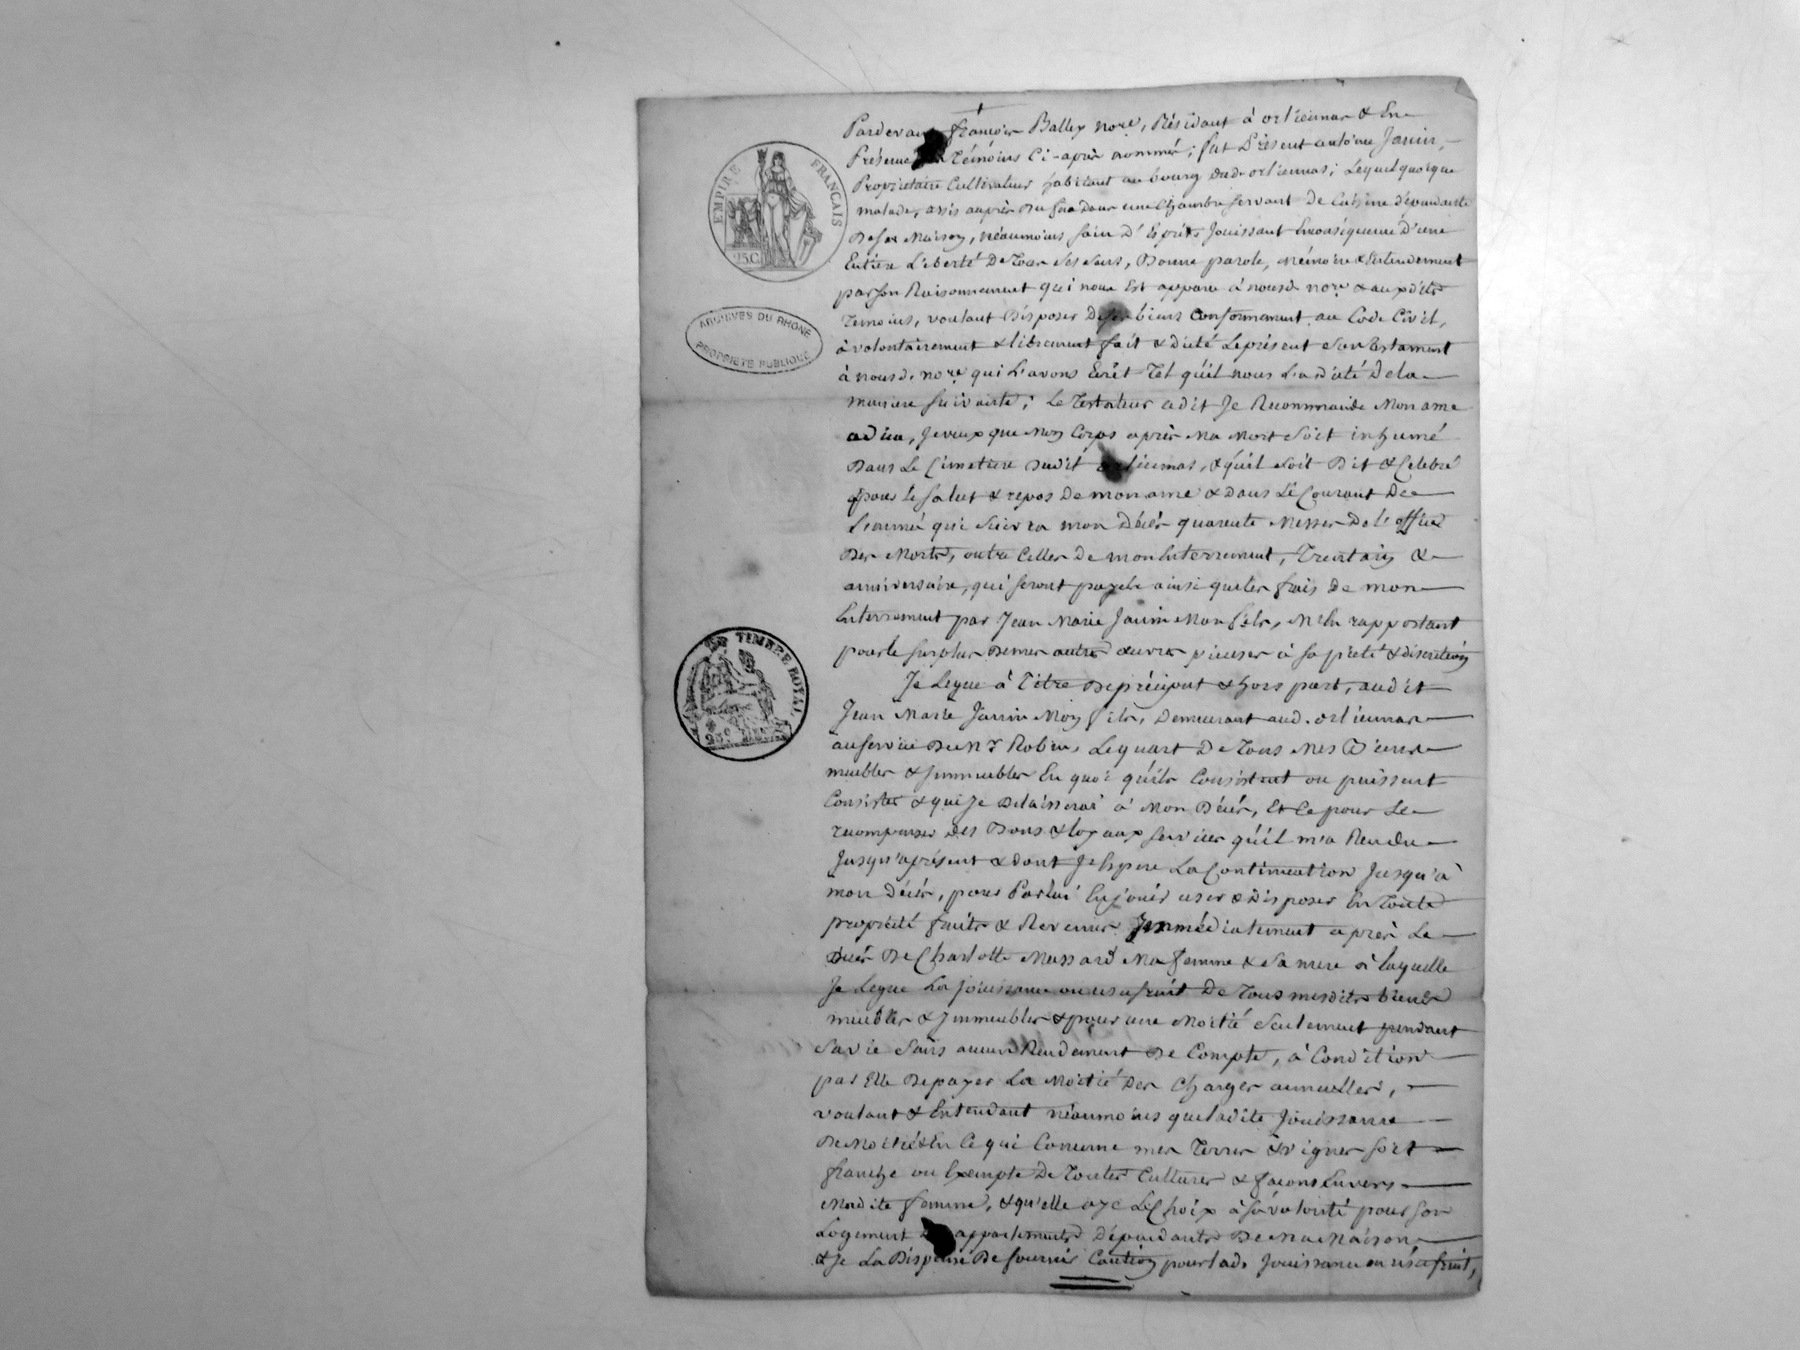 EMPIRE FRANÇAIS
25.C.
ARCHIVES DU RHONE
PROPRIÉTÉ PUBLIQUE
TIMBRE ROYAL
25c
Pardevant françois Balley nore, Résidant à orliennas & En
Présence Témoins Ci-après nommés; fut Présent antoine Janin,
Propriétaire Cultivateur habitant au bourg dud. orliennas; Lequel quoique
malade, assis auprès du feu Dans une Chambre servant De Cuisine dépendante
De sa Maison, néaumoins sain D'Esprit & Jouissant Enconséquence D'une
Entière Liberté De Tous Ses Sens, Bonne parole, mémoire & Entendement
par son Raisonnement qui nous Est apparu à nousd. nore & auxdits
Temoins, voulant Disposer De ses biens Conformément au Code Civil,
à volontairement & librement fait & dicté Le présent Son Testament
à nousd. nore qui L'avons Ecrit Tel qu'il nous L'a dicté De la
maniere Suivante; Le Testateur a dit Je Recommande Mon ame
a dieu, Je veux que Mon Corps après Ma Mort Soit inhumé
Dans Le Cimetiere Dudit orliennas, & qu'il Soit Dit & Celebré
pour le Salut & repos De mon ame & Dans Le Courant De
L'année qui Suivra mon Décès quarente Messes De l'office
Des Morts, outre Celles De mon Enterrement, Trentain &
anniversaire, qui Seront payées ainsi que les frais De mon
Enterrement par Jean Marie Janin Mon fils, M'En rapportant
pour le Surplus De mes autres œuvres pieuses à Sa pieté & discretion
Je Legue à Titre De préciput & hors part, audit
Jean Marie Janin Mon fils, Demeurant aud. orliennas
au Service Du Mr Robin, Le quart De Tous Mes Biens
meubles & Immeubles En quoi qu'ils Consistent ou puissent
Consister & que Je Delaisserai à Mon Décès, Et Ce pour Le
recompenser Des Bons & loyaux Services qu'il m'a Rendu
Jusqu'apresent & dont J'Espere La Continuation Jusqu'à
mon Décès, pour Par lui En jouir user & Disposer En Toute
propriété fruits & Revenus Immédiatement après Le
Décès De Charlotte Mussard Ma femme & Sa mere à laquelle
Je Legue La Jouissance ou usufruit De Tous mesdits biens
meubles & Immeubles & pour une Moitié Seulement pendant
Sa vie Sans aucun Rendement De Compte, à Condition
par Elle De payer La Moitié Des Charges annuelles,
voulant & Entendant néaumoins que ladite Jouissance
De Moitié En Ce qui Concerne mes Terres & vignes Soit
franche ou Exempte De Toutes Cultures & façons Envers
Madite femme, & qu'elle aye Le Choix à Sa volonté pour Son
Logement appartements Dépendants De Ma Maison
& Je La Dispense De fournir Caution pour lad. Jouissance ou usufruit,